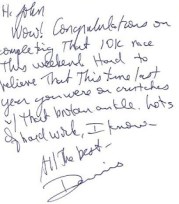 Hi John
Wow! Congratulations on
completing That 10K race
This weekend Hard to
believe That This time last
year you were on crutches
w/ that broken ankle. Lots
of hard work, I know -
All The best -
Dennis